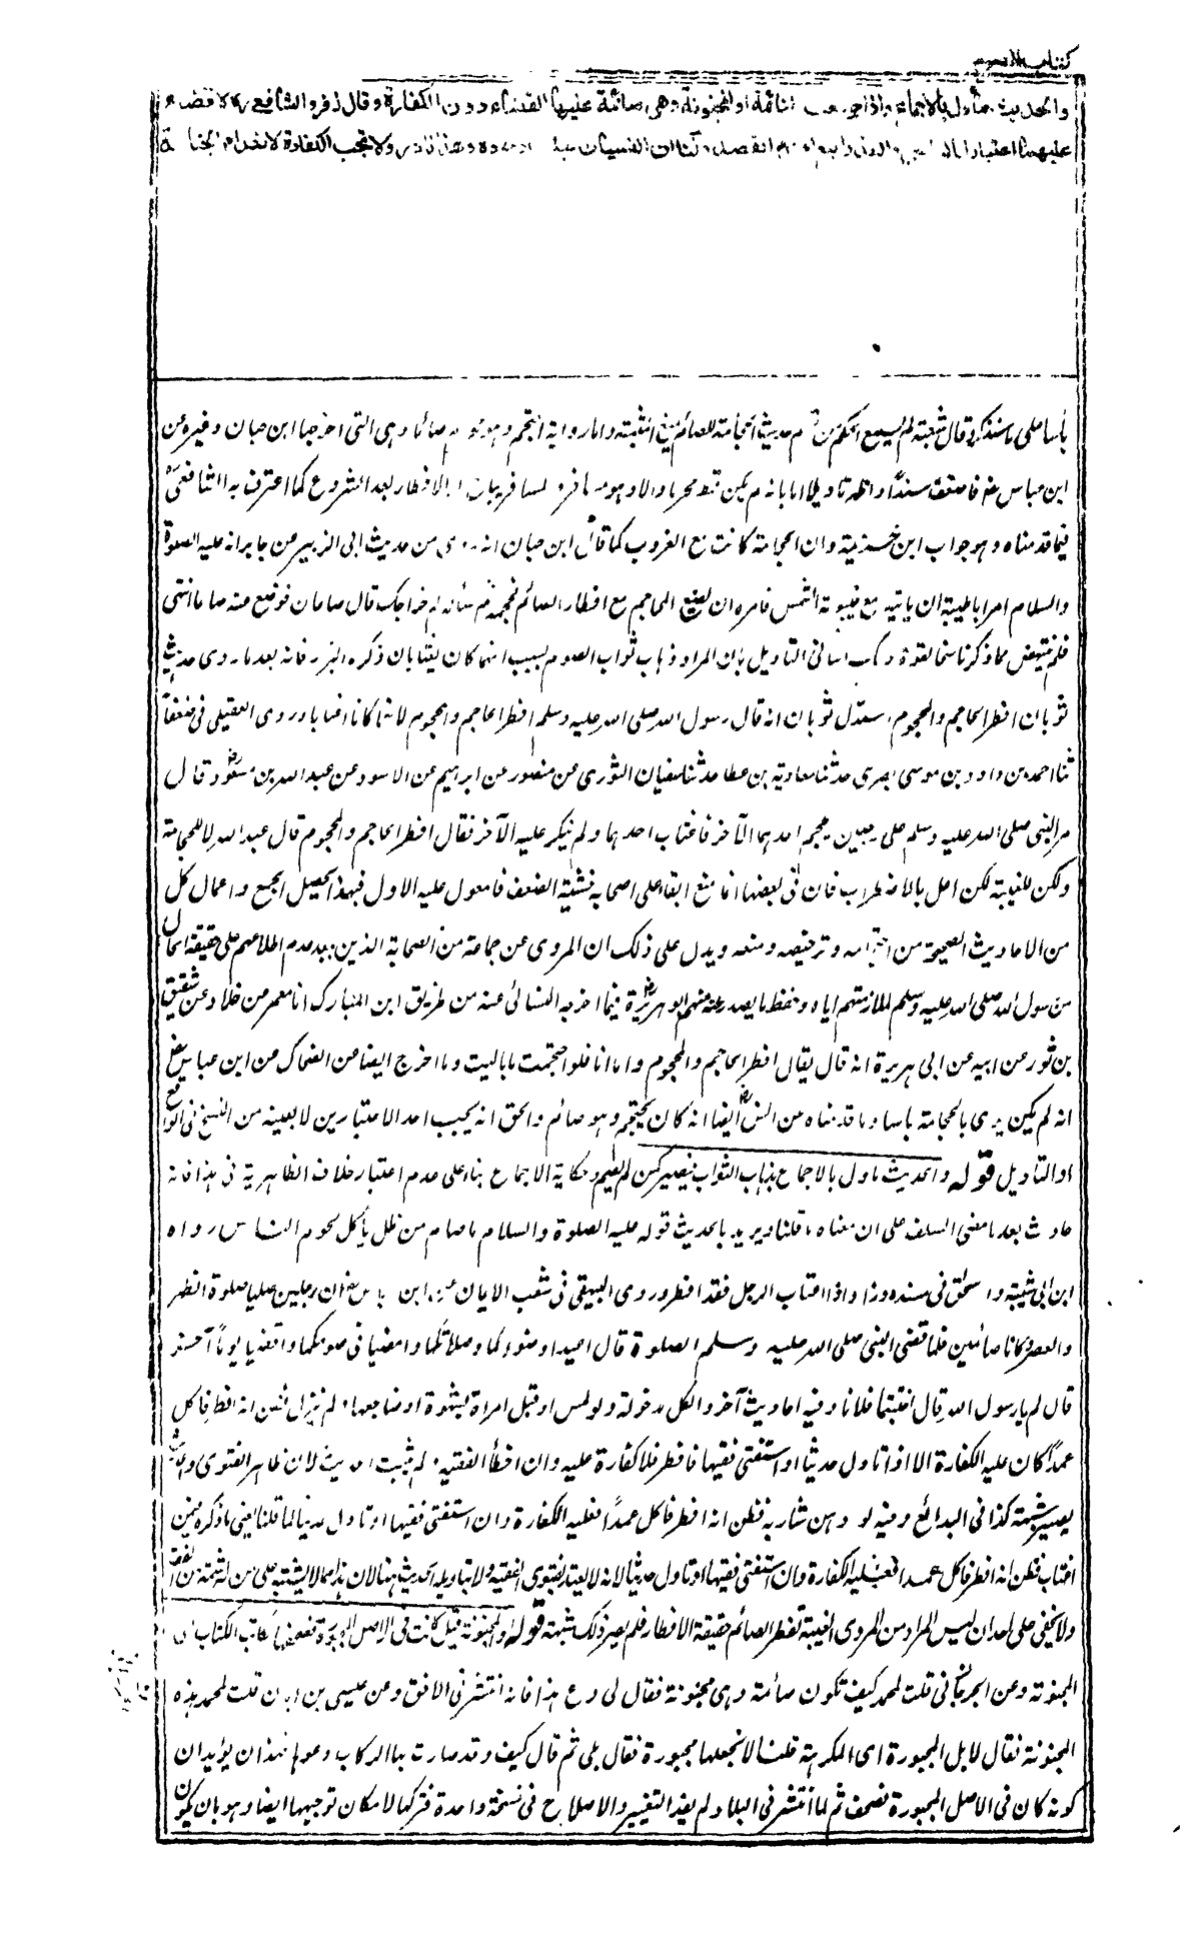 كتاب الصوم
والحديث مأول بالاجماع واذا جومعت النائمة او المجنونة وهى صائمة عليها القضاء دون الكفارة وقال زفر والشافعى لا قضاء
عليهما اعتبارا بالناسى والعذر ابلغ لعدم القصد ولنا ان النسيان يغلب وجوده وهذا نادر ولا تجب الكفارة لانعدام الجناية
بأسا على ما سنذكر وقال شعبة لم يسمع الحكم من مقسم حديث الحجامة للصائم يمنع المثبتة واما رواية احتجم وهو محرم صائم وهى التى اخرجها ابن حبان وغيره عن
ابن عباس رض فاضعف سندا واظهر تاويلا اما بانه لم يكن قط محرما والا وهو مسافر والمسافر يباح له الافطار بعد الشروع كما اعترف به الشافعى رح
فيما قدمناه وهو جواب ابن خزيمة وان الحجامة كانت مع الغروب كما قال ابن حبان انه روى من حديث ابى الزبير عن جابر انه عليه الصلوة
والسلام امر ابا طيبة ان ياتيه مع غيبوبة الشمس فامره ان يضع المحاجم مع افطار الصائم فحجمه ثم سأله كم خراجك قال صاعان فوضع عنه صاعا انتهى
فلم ينتهض مما ذكرنا ناسخا لقوة ذلك الثانى التاويل بان المراد ذهاب ثواب الصوم بسبب انهما كان يغتابان ذكره البزار فانه بعد ما روى حديث
ثوبان افطر الحاجم والمحجوم استدل ثوبان انه قال رسول الله صلى الله عليه وسلم افطر الحاجم والمحجوم لانهما كانا اغتابا وروى العقيلى فى ضعفائه
ثنا احمد بن داود بن موسى بصرى حدثنا معاوية بن عطا حدثنا سفيان الثورى عن منصور عن ابراهيم عن الاسود عن عبد الله بن مسعود رض قال
مر النبى صلى الله عليه وسلم على رجلين يحجم احدهما الآخر فاغتاب احدهما ولم ينكر عليه الآخر فقال افطر الحاجم والمحجوم قال عبد الله لا للحجامة
ولكن للغيبة لكن اعل بالاضطراب فان فى بعضها انما منع ابقاء على اصحابه خشية الضعف فالمعول عليه الاول فبهذا يحصل الجمع واعمال كل
من الاحاديث الصحيحة من احتجامه وترخيصه ومنعه ويدل على ذلك ان المروى عن جماعة من الصحابة الذين يبعد عدم اطلاعهم على حقيقة الحال
من رسول الله صلى الله عليه وسلم لملازمتهم اياه وحفظ ما يصدر عنه منهم ابو هريرة رض فيما اخرجه النسائى عنه من طريق ابن المبارك انا معمر عن خلاد عن شقيق
بن ثور عن ابيه عن ابى هريرة انه قال يقال افطر الحاجم والمحجوم واما انا فلو احتجمت ما باليت وما اخرج ايضا عن الضحاك عن ابن عباس رض
انه لم يكن يرى بالحجامة باسا وما قدمناه عن انس رض ايضا انه كان يحتجم وهو صائم والحق انه يجب احد الاعتبارين لا بعينه من النسخ فى الواقع
او التاويل قوله والحديث ماول بالاجماع بذهاب الثواب فيصير كمن لم يصم وحكاية الاجماع بناء على عدم اعتبار خلاف الظاهرية فى هذا فانه
حادث بعد ما مضى السلف على ان معناه ما قلنا ويريد بالحديث قوله عليه الصلوة والسلام ما صام من ظل يأكل لحوم الناس رواه
ابن ابى شيبة واسحق فى مسنده وزاد اذا اغتاب الرجل فقد افطر وروى البيهقى فى شعب الايمان عن ابن عباس رض ان رجلين صليا صلوة الظهر
والعصر وكانا صائمين فلما قضى النبى صلى الله عليه وسلم الصلوة قال اعيدا وضوءكما وصلاتكما وامضيا فى صومكما واقضيا يوما آخر
قال لم يا رسول الله قال اغتبتما فلانا وفيه احاديث آخر والكل مدخولة ولو لمس او قبل امراة بشهوة او ضاجعها ولم ينزل فظن انه افطر فاكل
عمدا كان عليه الكفارة الا اذا تاول حديثا او استفتى فقيها فافطر فلا كفارة عليه وان اخطأ الفقيه ولم يثبت الحديث لان ظاهر الفتوى والحديث
يصير شبهة كذا فى البدائع وفيه لو دهن شاربه فظن انه افطر فاكل عمدا فعليه الكفارة وان استفتى فقيها او تاول حديثا لما قلنا يعنى ما ذكره فيمن
اغتاب فظن انه افطر فاكل عمدا فعليه الكفارة وان استفتى فقيها او تاول حديثا لانه لا يعتد بفتوى الفقيه ولا بتاويله الحديث ههنا لان هذا مما لا يشتبه على من له شمة من الفقه
ولا يخفى على احد ان ليس المراد من المروى الغيبة تفطر الصائم حقيقة الافطار فلم يصر ذلك شبهة قوله او المجنونة قيل كانت فى الاصل المجبورة فصحفها الكتاب الى
المجنونة وعن الجرجانى قلت لمحمد كيف تكون صائمة وهى مجنونة فقال لى دع هذا فانه انتشر فى الافق وعن عيسى بن ابان قلت لمحمد هذه
المجنونة فقال لا بل المجبورة اى المكرهة قلت الا نجعلها مجبورة فقال بلى ثم قال كيف وقد صارت بها الركاب دعوها فهذان يؤيدان
كونه كان فى الاصل المجبورة فصحف ثم لما انتشر فى البلاد لم يفد التغيير والاصلاح فى نسخة واحدة فتركها لامكان توجيهها ايضا وهو بان تكون